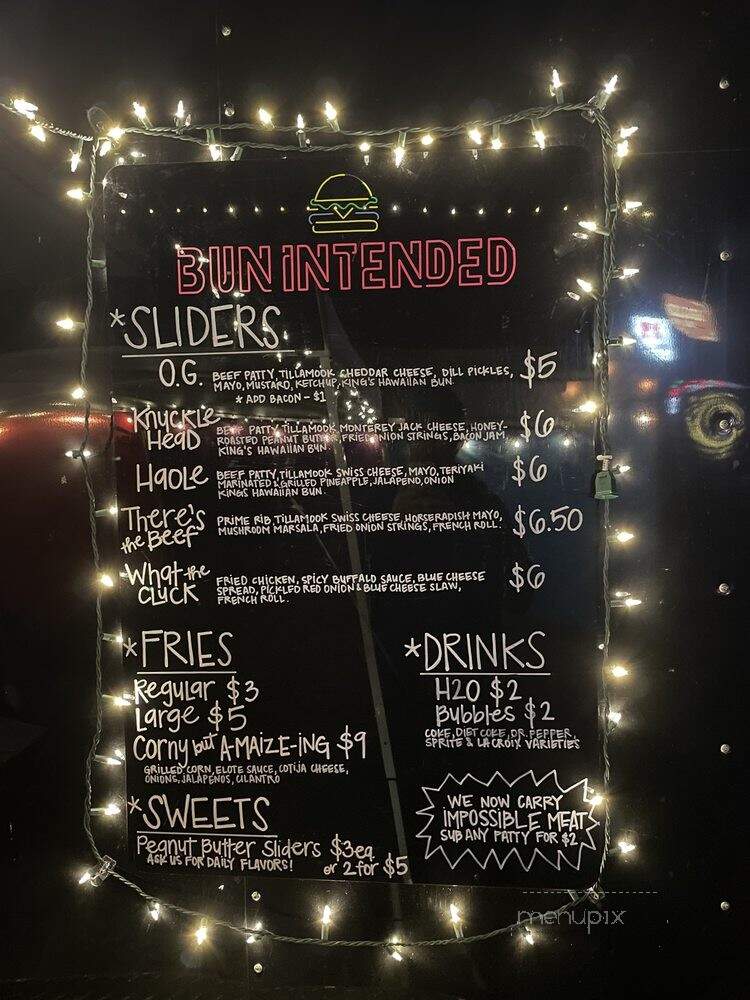 BUN INTENDED
*SLIDERS
O.G. BEEF PATTY, TILLAMOOK CHEDDAR CHEESE, DILL PICKLES, $5
MAYO, MUSTARD, KETCHUP, KING'S HAWAIIAN BUN.
* ADD BACON - $1
Knuckle Head BEEF PATTY, TILLAMOOK MONTEREY JACK CHEESE, HONEY- $6
ROASTED PEANUT BUTTER, FRIED ONION STRINGS, BACON JAM,
KING'S HAWAIIAN BUN.
Haole BEEF PATTY, TILLAMOOK SWISS CHEESE, MAYO, TERIYAKI $6
MARINATED & GRILLED PINEAPPLE, JALAPENO, ONION
KINGS HAWAIIAN BUN.
There's the Beef PRIME RIB, TILLAMOOK SWISS CHEESE, HORSERADISH MAYO, $6.50
MUSHROOM MARSALA, FRIED ONION STRINGS, FRENCH ROLL.
What the Cluck FRIED CHICKEN, SPICY BUFFALO SAUCE, BLUE CHEESE $6
SPREAD, PICKLED RED ONION & BLUE CHEESE SLAW,
FRENCH ROLL.
*FRIES
Regular $3
Large $5
Corny but A-MAIZE-ING $9
GRILLED CORN, ELOTE SAUCE, COTIJA CHEESE,
ONIONS, JALAPENOS, CILANTRO
*SWEETS
Peanut Butter Sliders $3ea
ASK US FOR DAILY FLAVORS! or 2 for $5
*DRINKS
H2O $2
Bubbles $2
COKE, DIET COKE, DR. PEPPER,
SPRITE & LA CROIX VARIETIES
WE NOW CARRY
IMPOSSIBLE MEAT
SUB ANY PATTY FOR $2
menupix